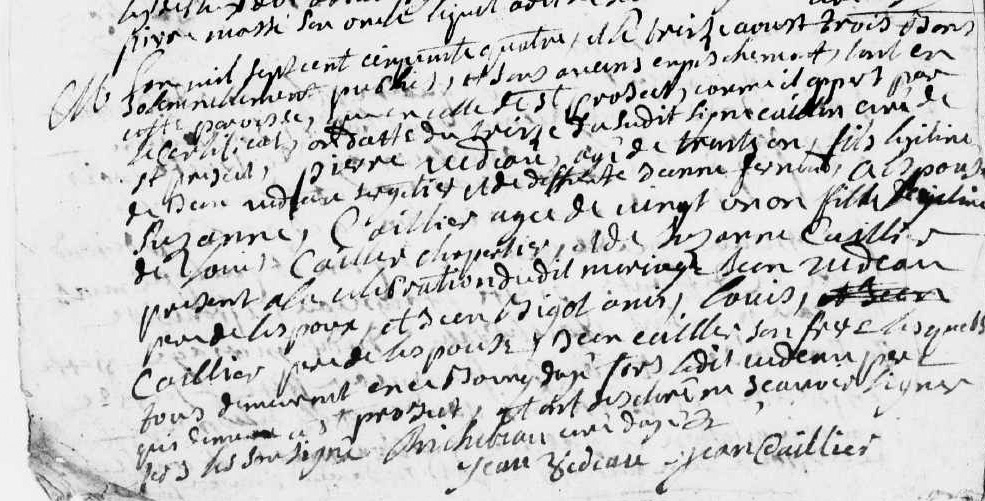 pierre massé son oncle lequel a
M Lan mil sept cent cinquante quatre, et le treize aoust trois bans
solemnellement publiés, et sans aucuns enpeschement, tant en
cette paroisse, que en celle de st projet, comme il apert par
le certificat, en datte du treize du susdit signe curé de
st projet, pierre videau, agé de trante an, fils legitime
de Jean videau sergetier et de deffunte Jeanne a espousé
Suzanne, Caillier agee de vingt un an fille legitime
de Louis Caillier charpentier, et de Suzanne Caillier
present a la celebration dudit mariage Jean videau
pere de lespoux, et Jean Bigot amis, Louis, et Jean
Caillier pere de lespouse, Jean caillier son frere lesquels
tous demeurent en ce bourg fors ledit videau pere
qui demeure a st projet, et ont declaré ne scavoir signer
fors les sousigné Richebeau curé
Jean Videau Jean Caillier